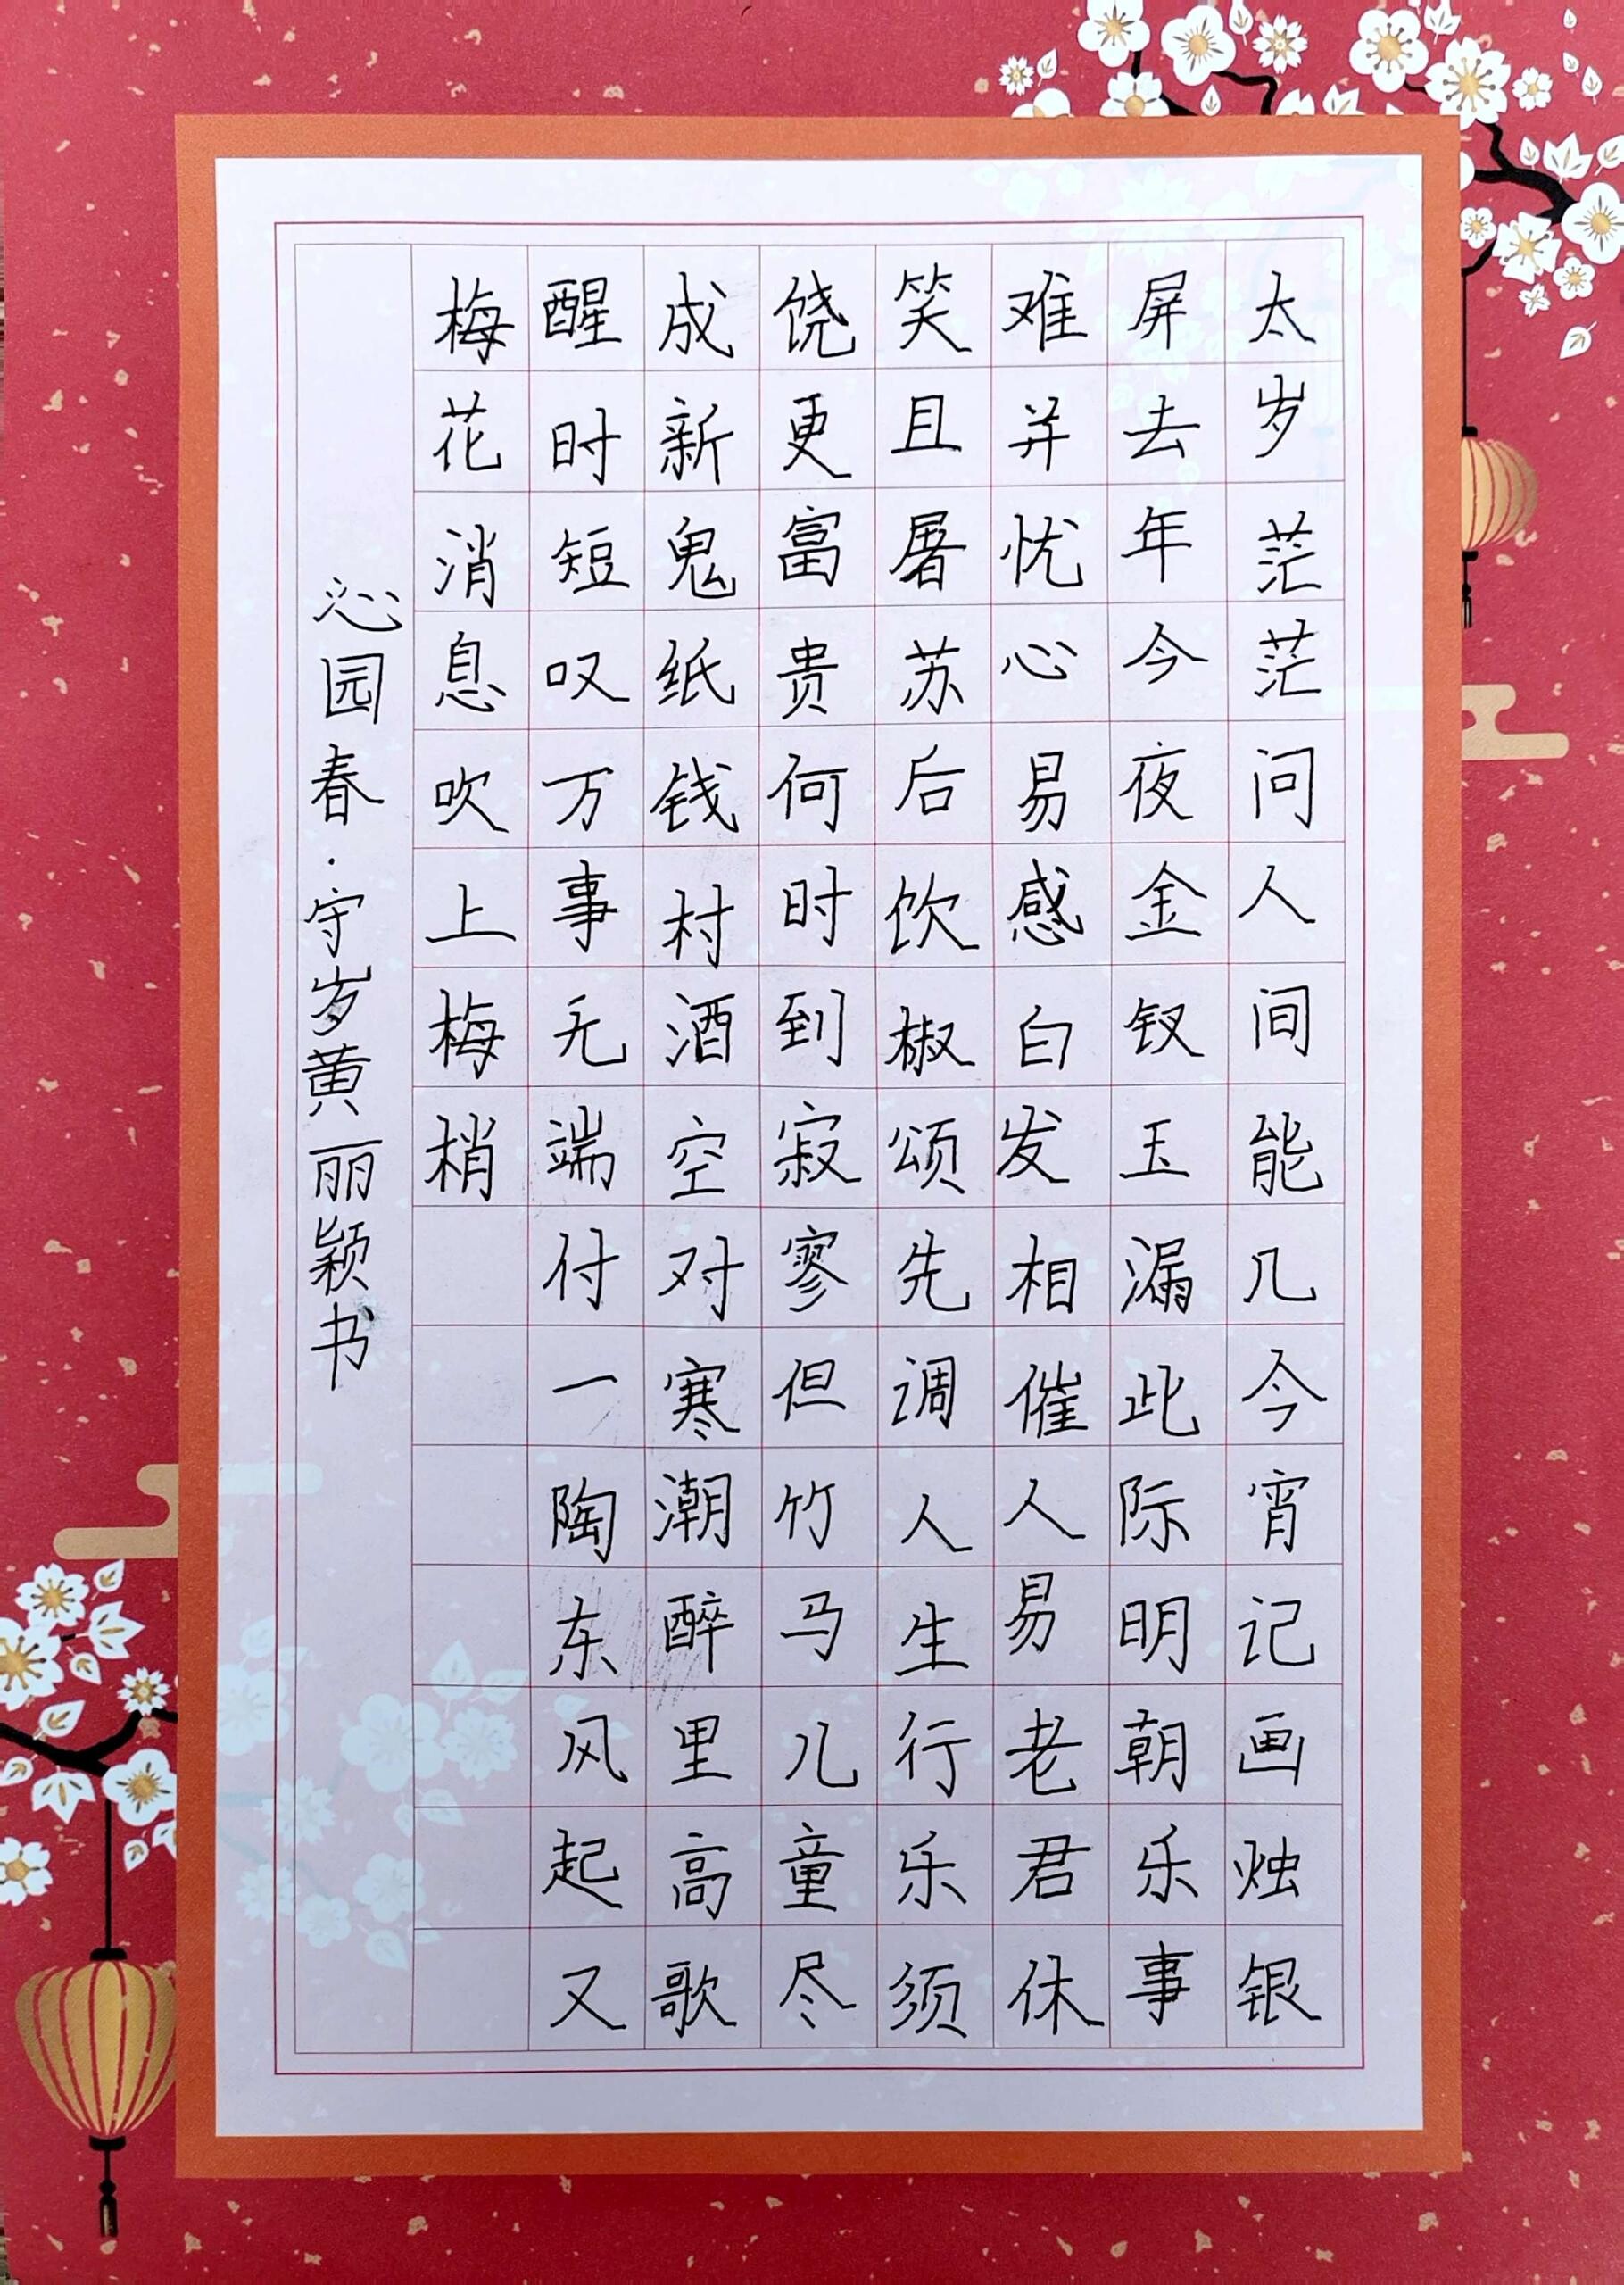 太岁茫茫问人间能几今宵记画烛银
屏去年今夜金钗玉漏此际明朝乐事
难并忧心易感白发相催人易老君休
笑且屠苏后饮椒颂先调人生行乐须
饶更富贵何时到寂寥但竹马儿童尽
成新鬼纸钱村酒空对寒潮醉里高歌
醒时短叹万事无端付一陶东风起又
梅花消息吹上梅梢
沁园春·守岁黄丽颖书